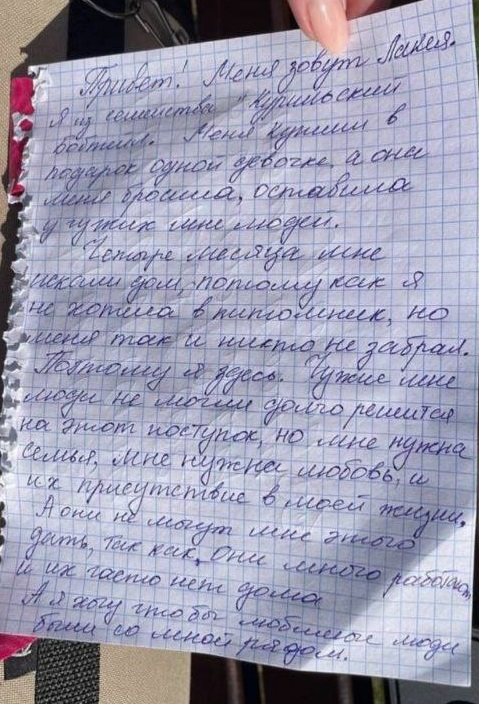 Привет! Меня зовут Ланея.
Я из семейства "Курильский
бобтейл. Меня купили в
подарок одной девочке, а она
меня бросила, оставила
у чужих мне людей.
Четыре месяца мне
искали дом, потому как я
не хотела в питомник, но
меня так и никто не забрал.
Поэтому я здесь. Чужие мне
люди не могли долго решится
на этот поступок, но мне нужна
семья, мне нужна любовь, и
их присутствие в моей жизни.
А они не могут мне этого
дать, так как, они много работают,
и их часто нет дома
А я хочу чтобы любимые люди
были со мной рядом.